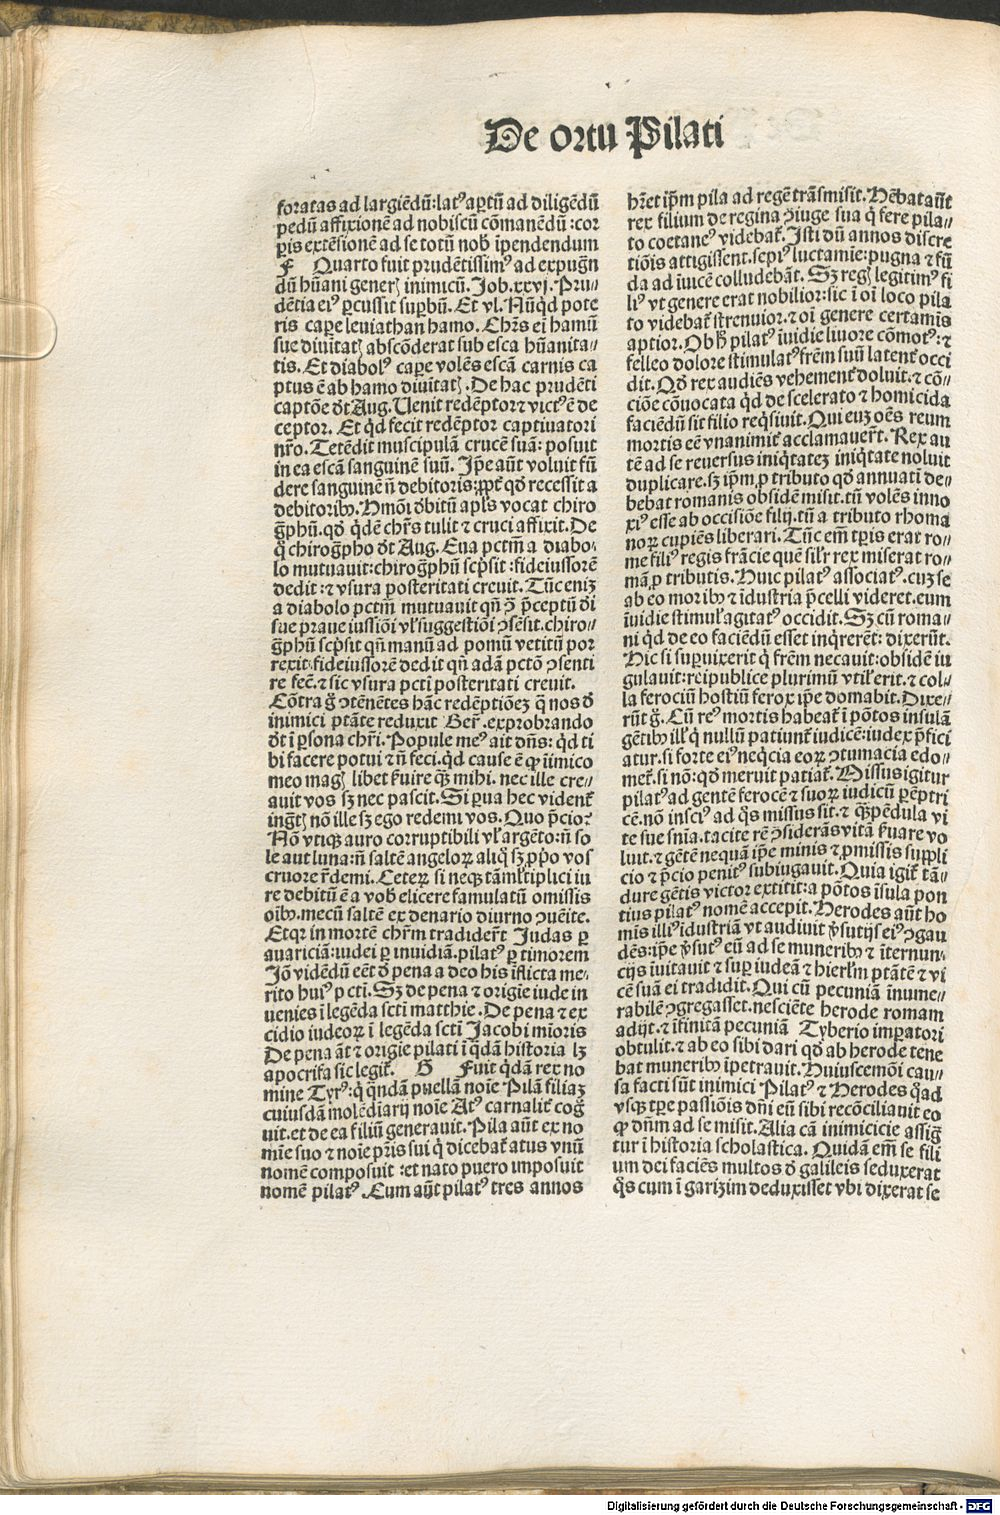 De ortu Pilati
foratas ad largiēdū: latꝰ aꝑtū ad diligēdū
pedū affixionē ad nobiscū cōmanēdū: cor
ꝑis extēsionē ad se totū nob̄ īpendendum
F Quarto fuit prudētissimꝰ ad expugn̄
dū hūani generꝭ inimicū. Job. xxvj. Pru⸗
dētia eiꝰ ꝑcussit suꝑbū. Et vl. Nūqͥd pote
ris caꝑe leuiathan hamo. Chrs̄ ei᷒ hamū
sue diuitatꝭ abscōderat sub esca hūanita⸗
tis. Et diabolꝰ caꝑe volēs escā carnis ca
ptus ē ab hamo diuitatꝭ. De hac prudēti
captōe dt̄ Aug. Uenit redēptor ⁊ victꝰ ē de
ceptor. Et qͥd fecit redēptor captiuatori
nr̄o. Tetēdit muscipulā crucē suā: posuit
in ea escā sanguinē suū. Ip̄e aūt voluit fū
dere sanguinē n̄ debitoris: ꝓpt̄ qd̄ recessit a
debitoribꝫ. Hmōi dbītū apl̄s vocat chiro
gͣphū. qd̄ qͥdē chrs̄ tulit ⁊ cruci affixit. De
qͦ chirogͣpho dt̄ Aug. Eua pctm̄ a diabo⸗
lo mutuauit: chirogͣphū scͥpsit: fideiussorē
dedit: ⁊ vsura posteritati creuit. Tūc enim
a diabolo pctm̄ mutuauit qn̄ ꝯ p̄ceptū dī
sue praue iussiōi vl̓ suggestiōi ꝯsēsit. chiro⸗
gͣphū scͥpsit qn̄ manū ad pomū vetitū por
rexit. fideiussorē dedit qn̄ adā pctō ꝯsenti
re fec̄. ⁊ sic vsura pcti posteritati creuit.
Cōtra gͦ ꝯtēnētes hāc redēptiōeꝫ qͣ nos d̄
inimici ptāte reduxit Ber̄. exprobrando
dt̄ ī ꝑsona chri᷒. Popule meꝰ ait dn̄s: qͥd ti
bi facere potui ⁊ n̄ feci. qͥd cause ē ꝙ iīmico
meo magꝭ libet ẜuire qͣꝫ mihi. nec ille cre⸗
auit vos sꝫ nec pascit. Si ꝑua hec vident᷑
ingͣtꝭ nō ille sꝫ ego redemi vos. Quo p̄cio?
Nō vtiqꝫ auro corruptibili vl̓ argēto: n̄ so
le aut luna: n̄ saltē angeloꝝ aliqͦ sꝫ ꝓpͥo vos
cruore rēdemi. Ceteꝝ si neqꝫ tā ml̓tiplici iu
re debitū ē a vob̄ elicere famulatū omissis
oībꝫ. mecū saltē ex denario diurno ꝯuēite.
Et qꝛ in mortē chrm̄ tradider̄t Judas ꝑ
auariciā: iudei ꝑ inuidiā. pilatꝰ ꝑ timorem
Jō vidēdū eēt d̄ pena a deo his īflicta me⸗
rito huiꝰ pcti. Sꝫ de pena ⁊ origīe iude in
uenies ī legēda scti matthie. De pena ⁊ ex
cidio iudeoꝝ ī legēda scti Jacobi mīoris
De pena āt ⁊ origīe pilati ī qͣdā historia lꝫ
apocrifa sic legit᷑. G Fuit qͥdā rex no
mine Tyrꝰ: qͥ qͣndā puellā noīe Pilā filiaꝫ
cuiusdā molēdiarij noīe Atꝰ carnalit᷑ cog̊
uit. et de ea filiū generauit. Pila aūt ex no
mīe suo ⁊ noīe pr̄is sui qͥ dicebat᷑ atus vnū
nomē composuit: et nato puero imposuit
nomē pilatꝰ. Cum aūt pilatꝰ tres annos
hr̄et ip̄m pila ad regē trāsmisit. Hēbat aūt
rex filium de regina ꝯiuge sua qͥ fere pila⸗
to coetaneꝰ videbat᷑. Isti dū annos discre
tiōis attigissent. sepiꝰ luctamīe: pugna ⁊ fū
da ad iuicē colludebāt. Sꝫ regꝭ legitimꝰ fi
liꝰ vt genere erat nobilior: sic ī oī loco pila
to videbat᷑ strenuior. ⁊ oī genere certamīs
aptior. Ob hͦ pilatꝰ īuidie liuore cōmotꝰ: ⁊
felleo dolore stimulatꝰ frēm suū latent᷑ occi
dit. Qd̄ rex audiēs vehement᷑ doluit. ⁊ cō⸗
ciōe cōuocata qͥd de scelerato ⁊ homicida
faciēdū sit filio reqͥsiuit. Qui euꝫ oēs reum
mortis eē vnanimit᷑ acclamauer̄t. Rex au
tē ad se reuersus iniqͥtateꝫ iniqͥtate noluit
duplicare. sꝫ ip̄m ꝓ tributo qd̄ annuati de⸗
bebat romanis obsidē misit. tū volēs inno
xiꝰ esse ab occisiōe filij. tū a tributo rhoma
noꝝ cupiēs liberari. Tūc em̄ tꝑis erat ro⸗
me filiꝰ regis frācie quē silr̄ rex miserat ro⸗
mā ꝓ tributis. Huic pilatꝰ associatꝰ. cuꝫ se
ab eo moribꝫ ⁊ īdustria p̄celli videret. eum
īuidie stimul̓ agitatꝰ occidit. Sꝫ cū roma⸗
ni qͥd de eo faciēdū esset inqͥrerēt: dixerūt.
Hic si suꝑuixerit qͥ frēm necauit: obsidē iu
gulauit: reipublice plurimū vtil̓ erit. ⁊ col⸗
la ferociū hostiū ferox ip̄e domabit. Dixe⸗
rūt gͦ. Cū reꝰ mortis habeat᷑ ī pōtos insulā
gētibꝫ ill̓ qͥ nullū patiunt᷑ iudicē: iudex p̄fici
atur. si forte eiꝰ neqͥcia eoꝝ ꝯtumacia edo⸗
met᷑. si nō: qd̄ meruit patiat᷑. Missus igitur
pilatꝰ ad gentē ferocē ⁊ suoꝝ iudicū ꝑēptri
cē. nō insciꝰ ad qͦs missus sit. ⁊ qͣꝫ pēdula vi
te sue sn̄ia. tacite rē ꝯsiderās vitā ẜuare vo
luit. ⁊ gētē nequā ip̄e minis ⁊ ꝓmissis suppli
cio ⁊ p̄cio penitꝰ subiugauit. Quia igit᷑ tā⸗
dure gētis victor extitit: a pōtos īsula pon
tius pilatꝰ nomē accepit. Herodes aūt ho
mis illiꝰ īdustriā vt audiuit v̓sutijs eiꝰ ꝯgau
dēs: ip̄e v̓sutꝰ eū ad se muneribꝫ ⁊ īternun⸗
cijs īuitauit ⁊ suꝑ iudeā ⁊ hierl̓m ptātē ⁊ vi
cē suā ei tradidit. Qui cū pecuniā īnume⸗
rabilē ꝯgregasset. nesciēte herode romam
adijt. ⁊ īfinitā pecuniā Tyberio imꝑatori
obtulit. ⁊ ab eo sibi dari qd̄ ab herode tene
bat muneribꝫ īpetrauit. Huiuscemōi cau⸗
sa facti sūt inimici Pilatꝰ ⁊ Herodes qͦad
vsqꝫ tꝑe passiōis dn̄i eū sibi recōciliauit eo
ꝙ dn̄m ad se misit. Alia cā inimicicie assig̊
tur ī historia scholastica. Quidā em̄ se fili
um dei faciēs multos d̄ galileis seduxerat
qͦs cum ī garizim deduxisset vbi dixerat se
Digitalisierung gefördert durch die Deutsche Forschungsgemeinschaft - DFG